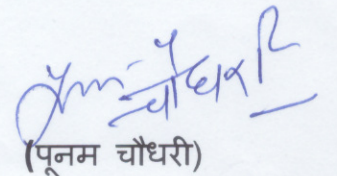 पूनम चौधरी
(पूनम चौधरी)